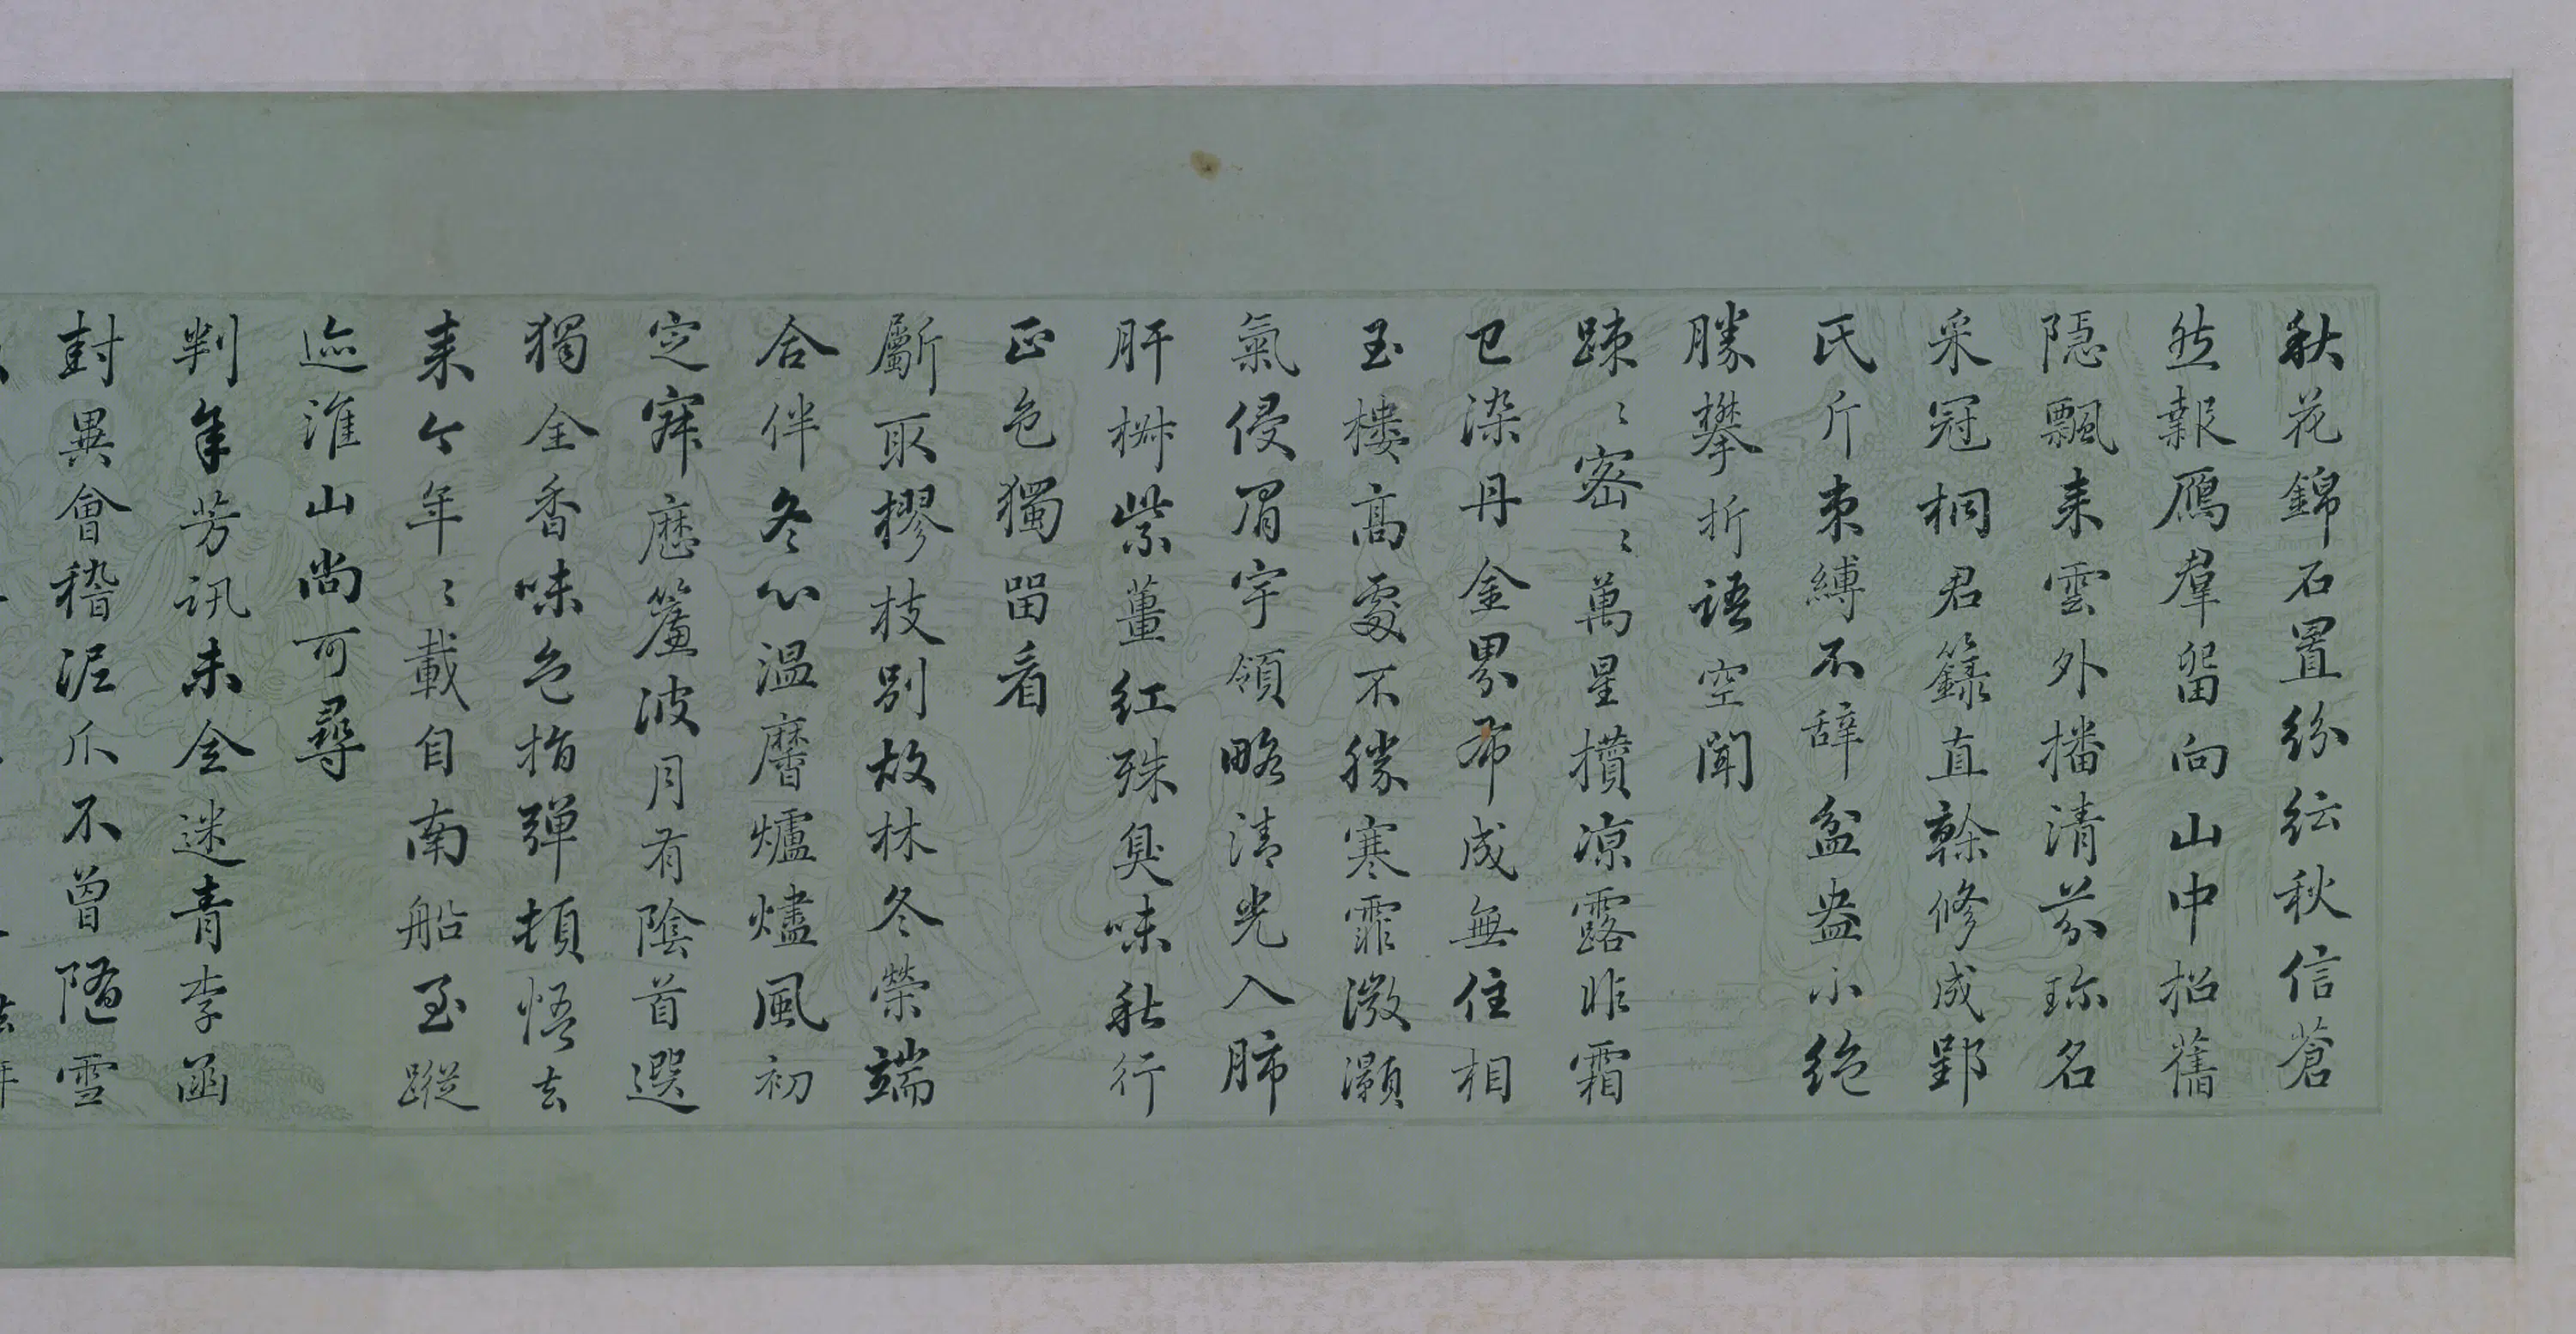 秋花錦石置紛紜秋信蒼
然報鴈羣留向山中招舊
隱飄来雲外播清芬珎名
采冠桐君籙直榦修成郢
氏斤束縛不辞盆盎小絶
勝攀折语空聞
踈〻密〻萬星攢凉露昨霜
已染丹金界布成無住相
玉樓高處不勝寒霏微灝
氣侵眉宇領略清光入肺
肝樹紫薑紅殊臭味秋行
正色獨留看
斸取樛枝别故林冬榮端
合伴冬心温麐爐燼風初
定寂歴簷波月有陰首選
獨全香味色指弹頓悟去
来今年〻載自南船至蹤
迹淮山尚可尋
判年芳訊未全迷青李函
封異會稽泥爪不曾随雪